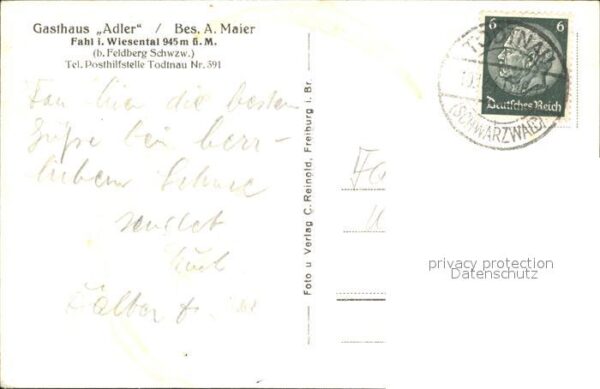 Gasthaus „Adler" / Bes. A. Maier
Fahl i. Wiesental 945 m ü. M.
(b. Feldberg Schwzw.)
Tel. Posthilfstelle Todtnau Nr. 391
die besten
bei herr-
lichem Schnee
sendet
Euch
Foto u Verlag C. Reinold, Freiburg i. Br.
6 6
Deutsches Reich
TODTNAU
(SCHWARZWALD)
privacy protection
Datenschutz